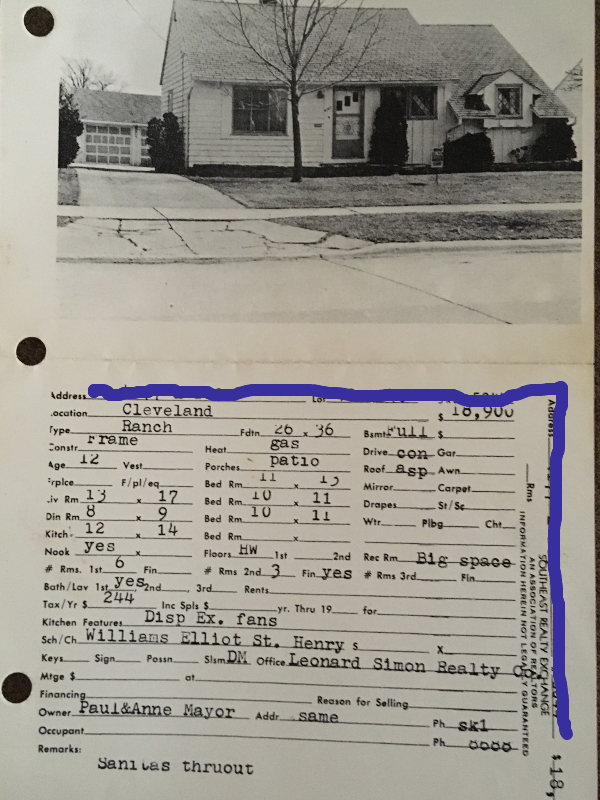 Address Lot
Location Cleveland $ 18,900
Type Ranch Fdtn 26 x 36 Bsmt Full $
Constr Frame Heat gas Drive con Gar
Age 12 Vest Porches patio Roof asp Awn
Frplce F/pl/eq Bed Rm 11 x 13 Mirror Carpet
Liv Rm 13 x 17 Bed Rm 10 x 11 Drapes St/Sc
Din Rm 8 x 9 Bed Rm 10 x 11 Wtr Plbg Cht
Kitch 12 x 14 Bed Rm x
Nook yes Floors HW 1st 2nd Rec Rm Big space
# Rms. 1st 6 Fin # Rms 2nd 3 Fin yes # Rms 3rd Fin
Bath/Lav 1st yes 2nd, 3rd Rents
Tax/Yr $ 244 Inc Spls $ yr. Thru 19 for
Kitchen Features Disp Ex. fans
Sch/Ch Williams Elliot St. Henry $ x
Keys Sign Possn Slsm DM Office Leonard Simon Realty Co
Mtge $ at
Financing Reason for Selling
Owner Paul&Anne Mayor Addr same Ph sk1
Occupant Ph
Remarks:
Sanitas thruout
Address
Rms
SOUTHEAST REALTY EXCHANGE
AN ASSOCIATION OF REALTORS
INFORMATION HEREIN NOT LEGALLY GUARANTEED
$ 18,